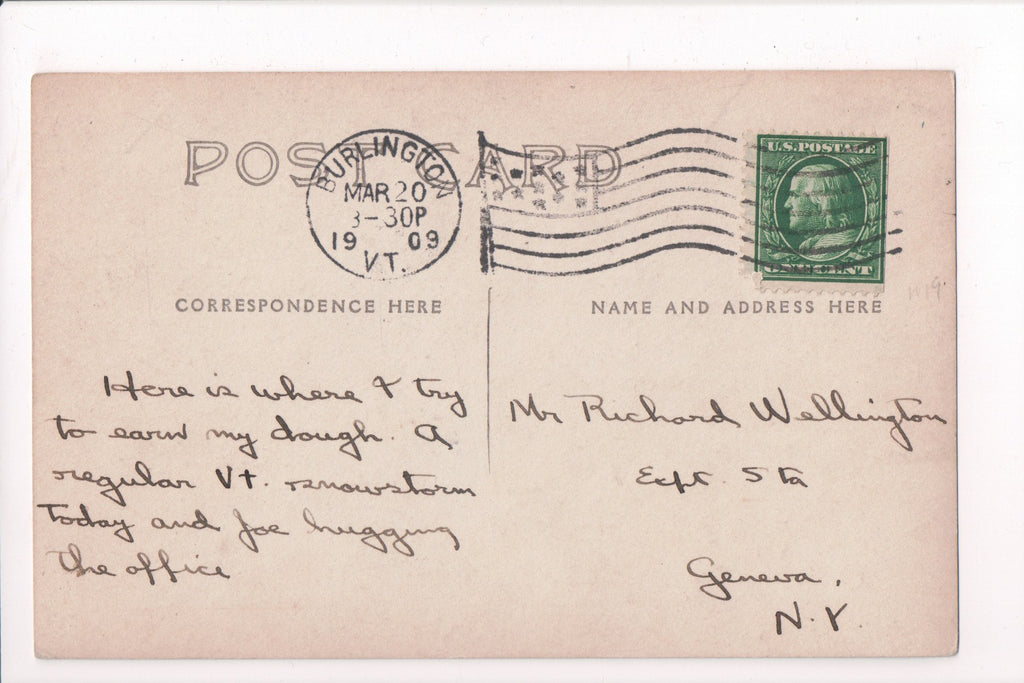 POST CARD
BURLINGTON
MAR 20
3-30P
19 09
VT.
U.S. POSTAGE
ONE CENT
CORRESPONDENCE HERE
NAME AND ADDRESS HERE
Here is where I try
to earn my dough. A
regular Vt. snowstorm
today and Joe hugging
the office
Mr Richard Wellington
Expt. Sta
Geneva,
N.Y.